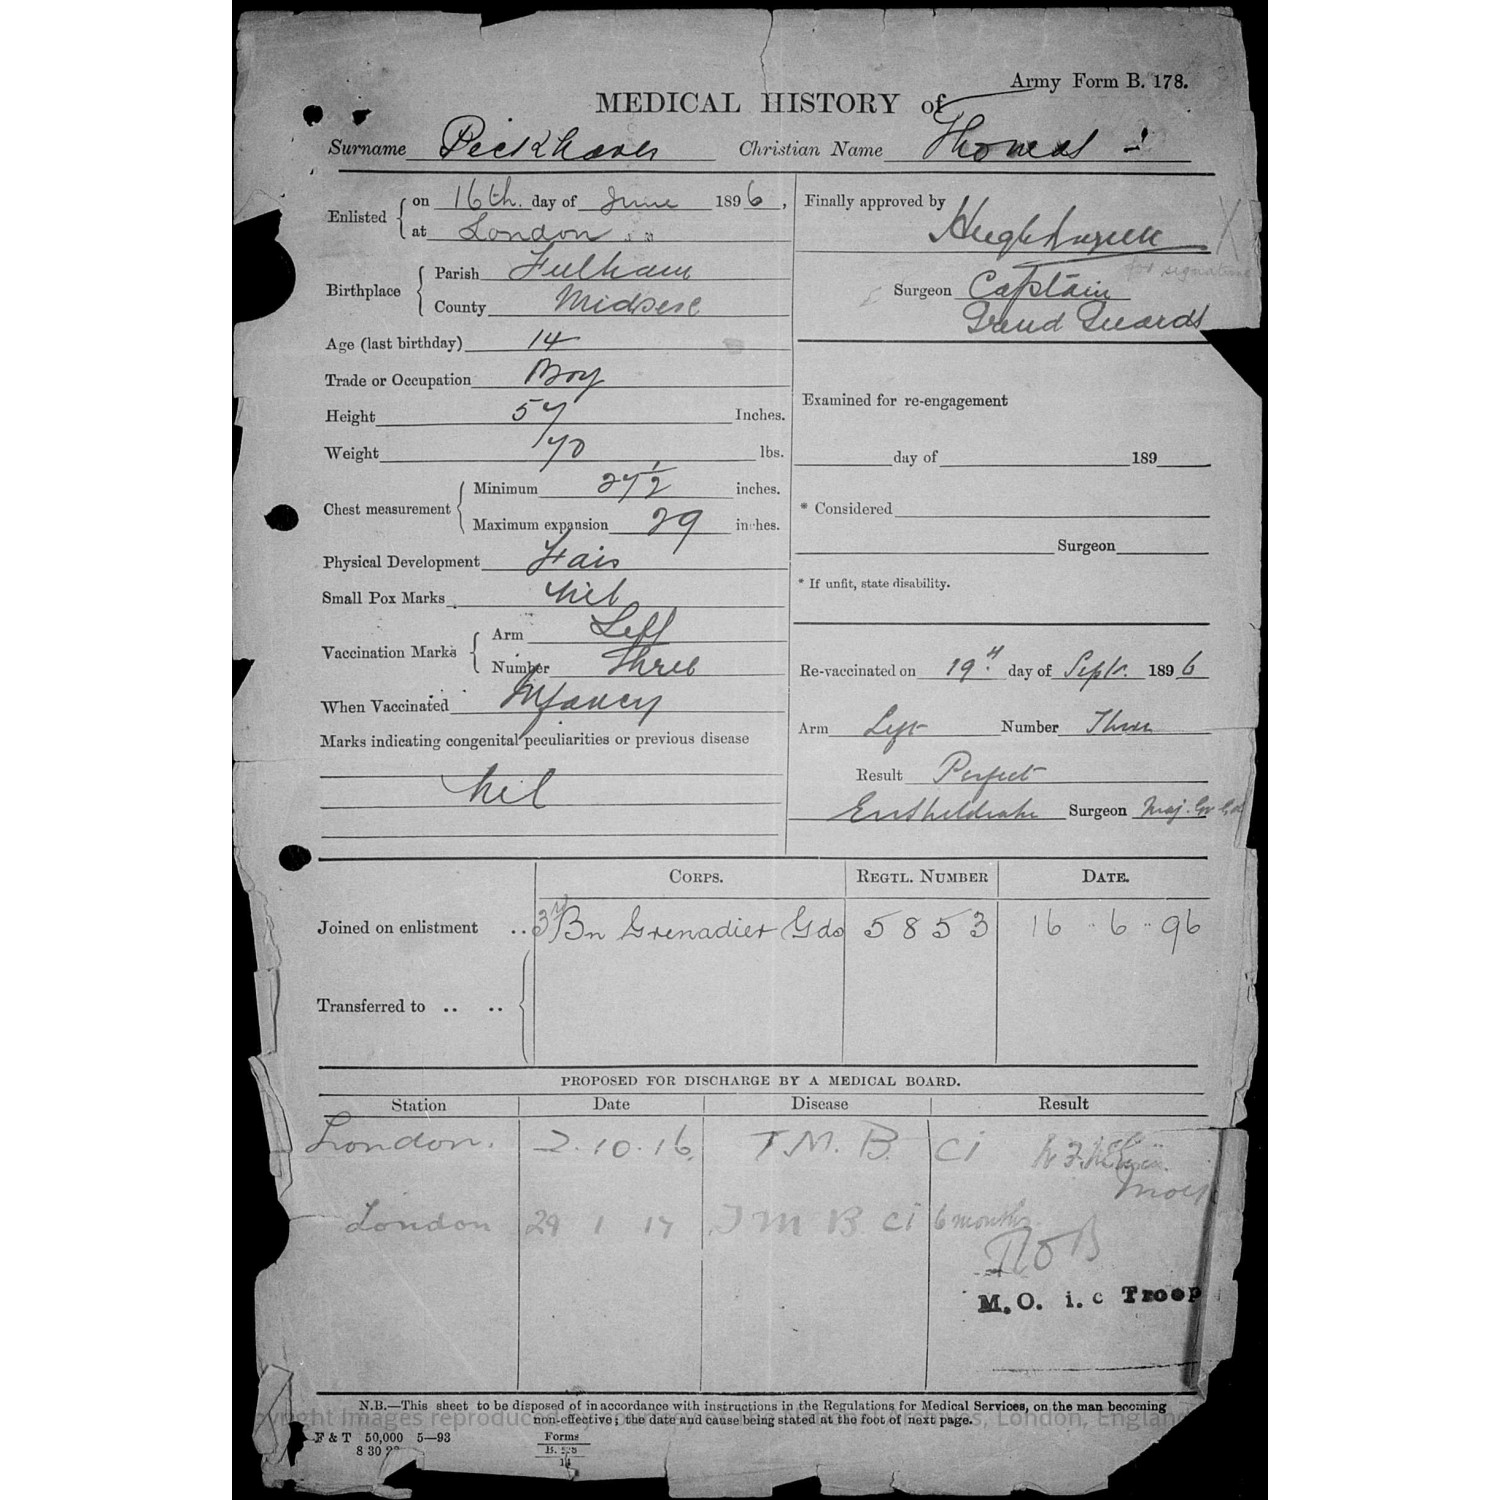 Army Form B. 178.
MEDICAL HISTORY of
Surname Peckhaver Christian Name Thomas
Enlisted on 16th. day of June 1896,
at London
Birthplace Parish Fulham
County Midsesx
Age (last birthday) 14
Trade or Occupation Boy
Height 57 Inches.
Weight 70 lbs.
Chest measurement Minimum 27½ inches.
Maximum expansion 29 inches.
Physical Development Fair
Small Pox Marks nil
Vaccination Marks Arm Left
Number Three
When Vaccinated Infancy
Marks indicating congenital peculiarities or previous disease
nil
Finally approved by
for signature
Surgeon Captain
Grend Guards
Examined for re-engagement
day of 189
* Considered
Surgeon
* If unfit, state disability.
Re-vaccinated on 19th day of Sept. 1896
Arm Left Number Three
Result Perfect
Surgeon Maj. Gr Gds
CORPS. REGTL. NUMBER DATE.
Joined on enlistment .. 3rd Bn Grenadier Gds 5853 16 .. 6 .. 96
Transferred to .. ..
PROPOSED FOR DISCHARGE BY A MEDICAL BOARD.
Station Date Disease Result
London. 2.10.16 T.M.B. Ci
London 29 1 17 T M B Ci 6 months
M.O. i. c Troop
N.B.—This sheet to be disposed of in accordance with instructions in the Regulations for Medical Services, on the man becoming
non-effective; the date and cause being stated at the foot of next page.
Copyright images reproduced by courtesy of The National Archives, London, England
F & T 50,000 5—93
8 30 22
Forms
B. 178
14